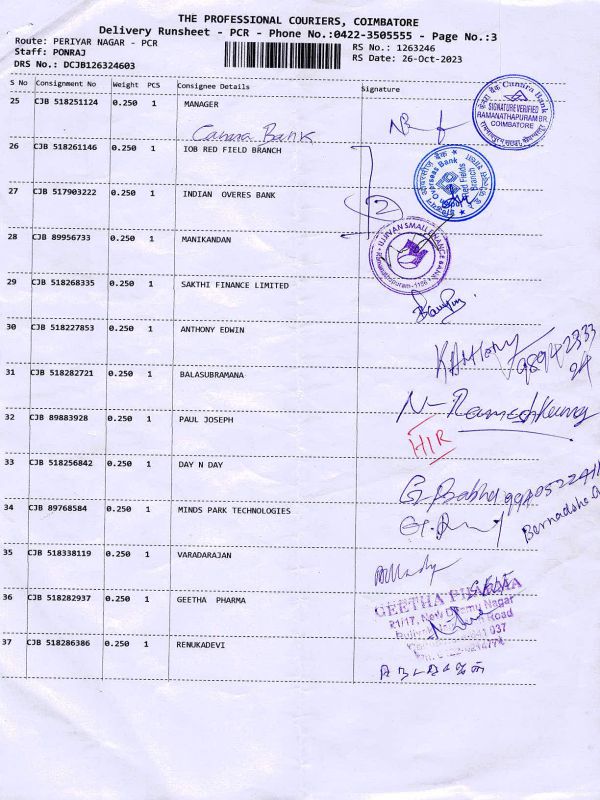 THE PROFESSIONAL COURIERS, COIMBATORE
Delivery Runsheet - PCR - Phone No.:0422-3505555 - Page No.:3
Route: PERIYAR NAGAR - PCR
Staff: PONRAJ
DRS No.: DCJB126324603
RS No.: 1263246
RS Date: 26-Oct-2023
S No Consignment No Weight PCS Consignee Details Signature
25 CJB 518251124 0.250 1 MANAGER
Canara Bank
Canara Bank
SIGNATURE VERIFIED
RAMANATHAPURAM BR.
COIMBATORE
26 CJB 518261146 0.250 1 IOB RED FIELD BRANCH
Overseas Bank
Red Fields
Branch
27 CJB 517903222 0.250 1 INDIAN OVERES BANK
2
28 CJB 89956733 0.250 1 MANIKANDAN
UJJIVAN SMALL FINANCE BANK
29 CJB 518268335 0.250 1 SAKTHI FINANCE LIMITED
30 CJB 518227853 0.250 1 ANTHONY EDWIN
31 CJB 518282721 0.250 1 BALASUBRAMANA
N- Rameshkumar
32 CJB 89883928 0.250 1 PAUL JOSEPH
HIR
33 CJB 518256842 0.250 1 DAY N DAY
G. Prabhu
34 CJB 89768584 0.250 1 MINDS PARK TECHNOLOGIES
35 CJB 518338119 0.250 1 VARADARAJAN
36 CJB 518282937 0.250 1 GEETHA PHARMA
GEETHA PHARMA
37 CJB 518286386 0.250 1 RENUKADEVI